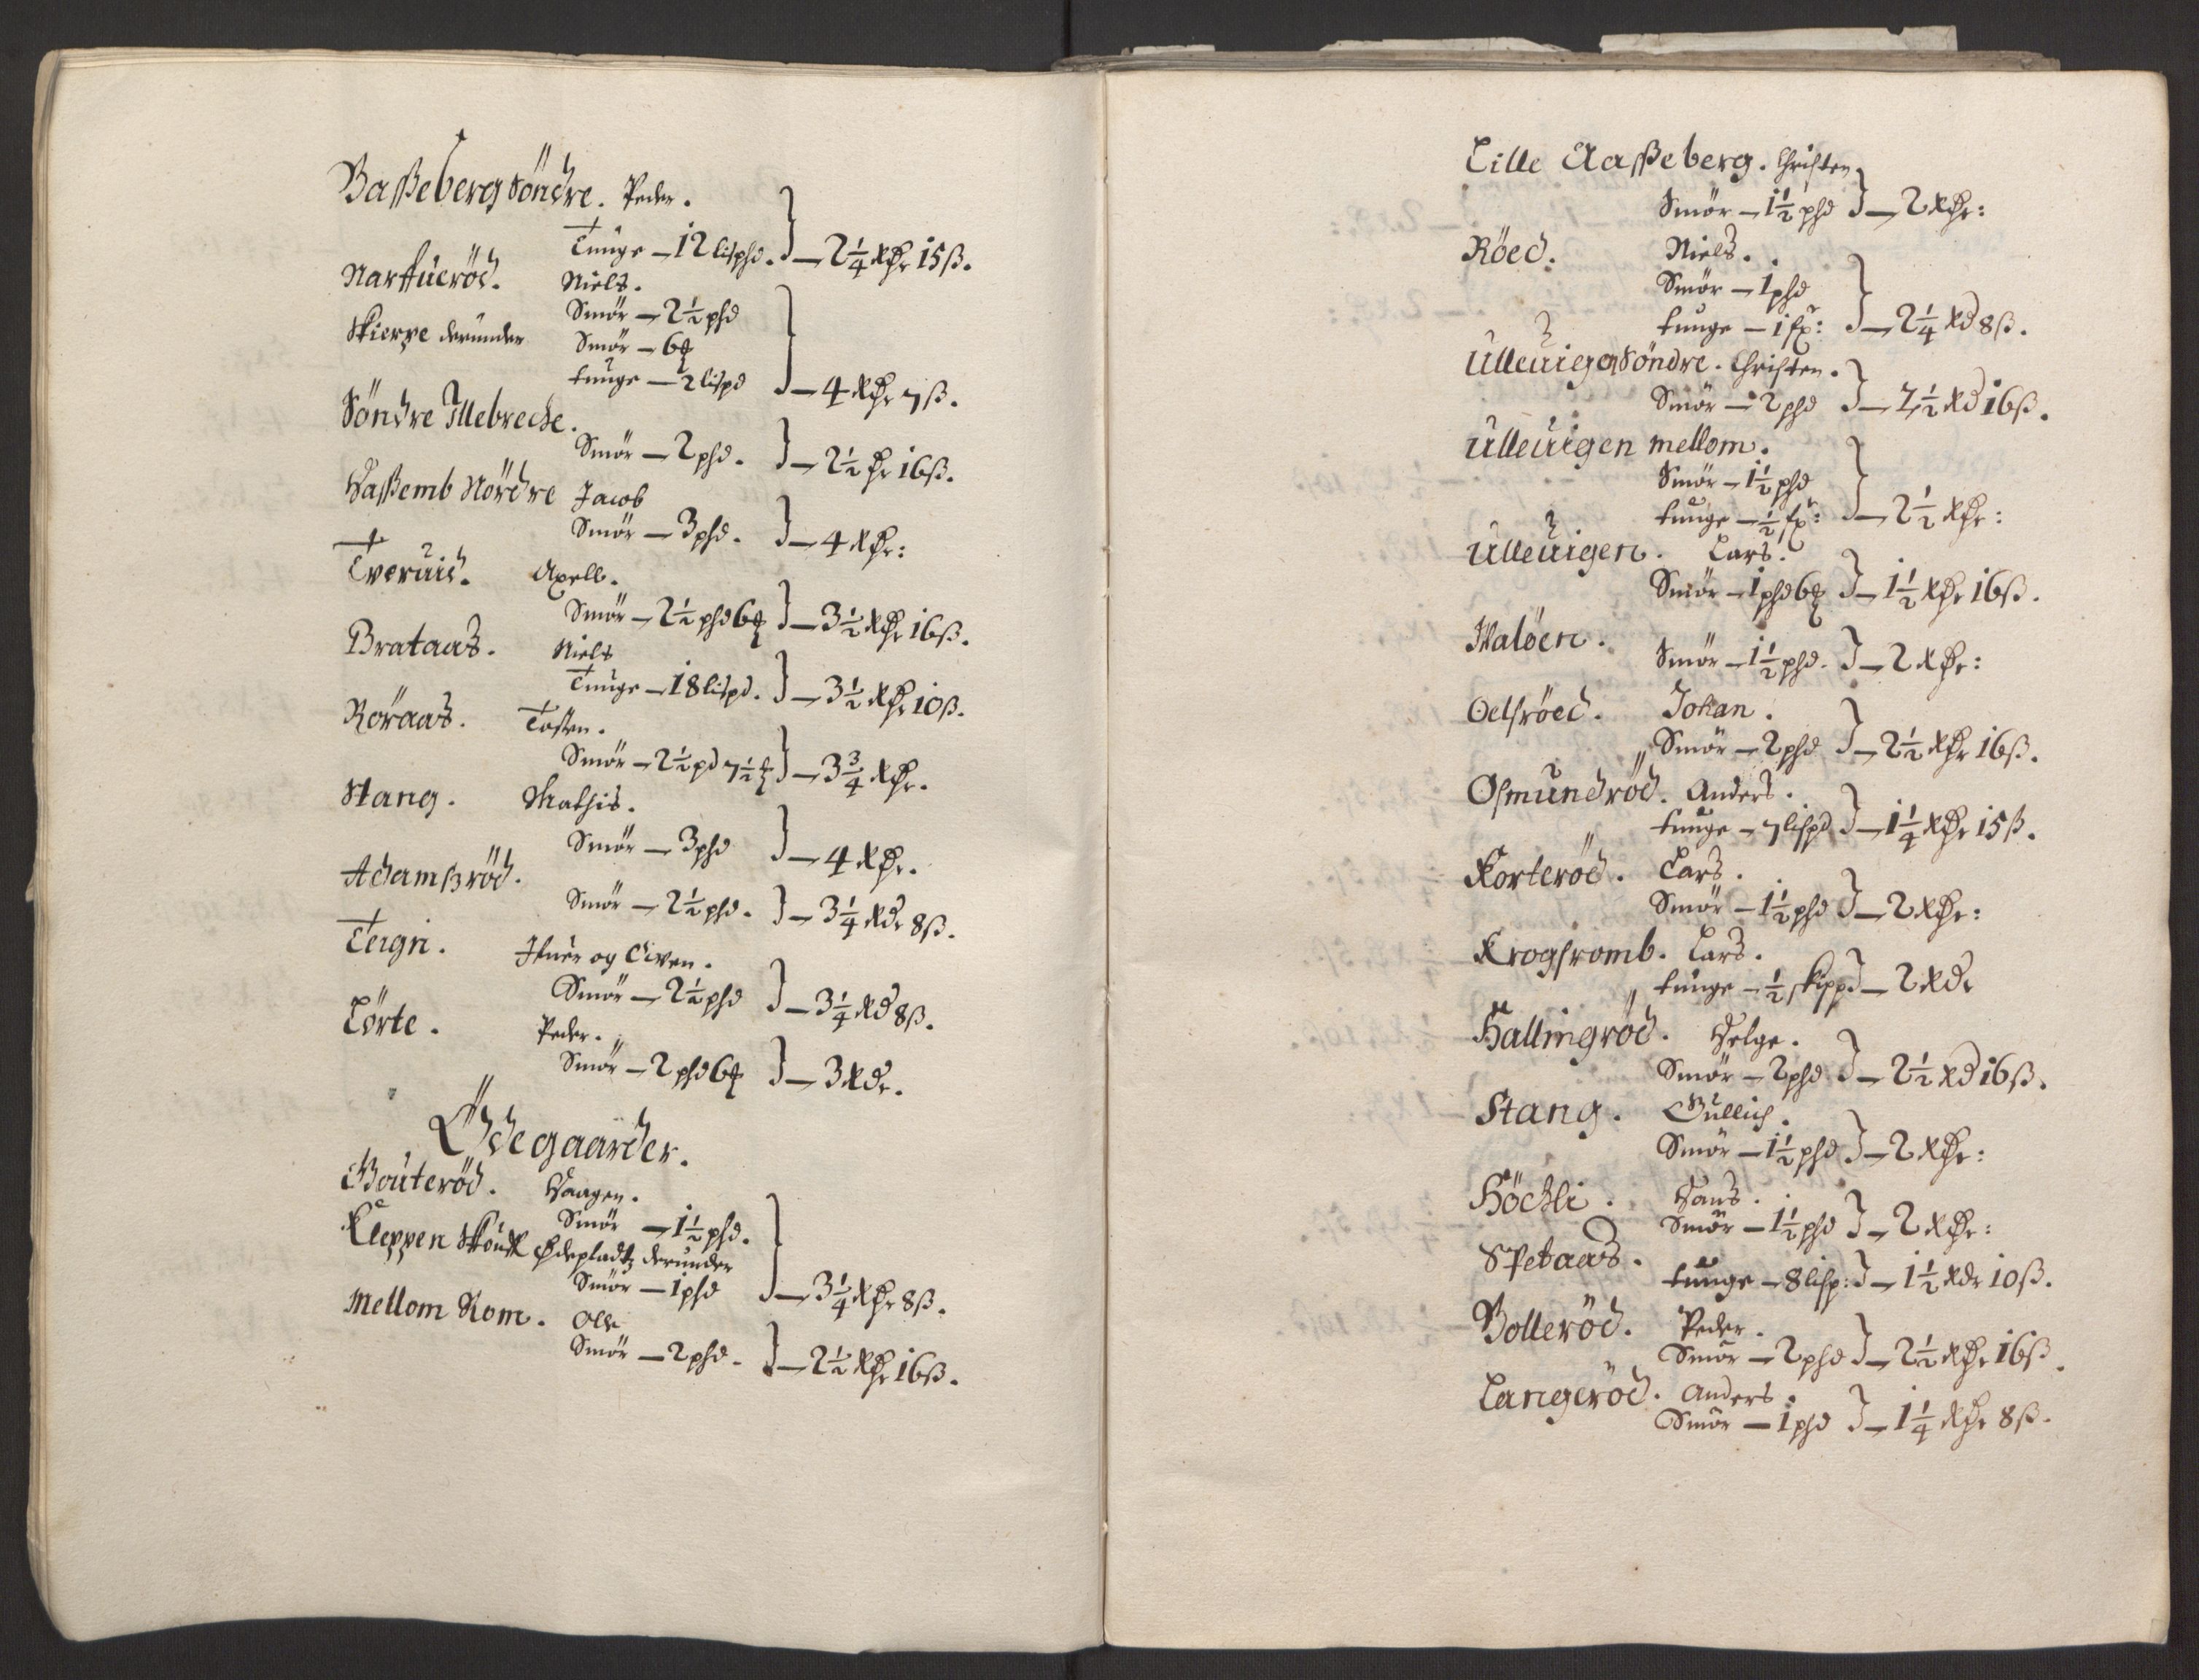 Basseberg Söndre. Peder.
Tunge — 12 lisphd. } — 2 1/4 Rdr 15 ß.
Narffueröd. Niels.
Smör — 2 1/2 phd
Skierpe derunder Smör — 6 ℔
tunge — 2 lispd } — 4 Rdr 7 ß.
Söndre Illebrecke.
Smör — 2 phd. } — 2 1/2 dr 16 ß.
Hassemb Nördre Jacob
Smör — 3 phd. } — 4 Rdr:
Tveruid. Axell.
Smör — 2 1/2 phd 6 ℔ } — 3 1/2 Rdr 16 ß.
Brataas. Niels
Tunge — 18 lispd. } — 3 1/2 Rdr 10 ß.
Röraas. Tosten.
Smör — 2 1/2 pd 7 1/2 ℔ } — 3 3/4 Rdr.
Stang. Mathis.
Smör — 3 phd } — 4 Rdr.
Adamsröd.
Smör — 2 1/2 phd. } — 3 1/4 Rdr 8 ß.
Teign. Ifuer og Eiven.
Smör — 2 1/2 phd } — 3 1/4 Rd 8 ß.
Lörte. Peder.
Smör — 2 phd 6 ℔ } — 3 Rdr.
Ödegaarder.
Gouteröd. Haagen.
Smör — 1 1/2 phd.
Kleppen Skouff Ödepladtz derunder
Smör — 1 phd } — 3 1/4 Rdr 8 ß.
Mellom Rom. Olle
Smör — 2 phd. } — 2 1/2 Rdr 16 ß.
Lille Aasseberg. Christen.
Smör — 1 1/2 phd } — 2 Rdr:
Röed. Niels.
Smör — 1 phd
tunge — 1 fxr: } — 2 1/4 Rd 8 ß.
Ulleuigen Söndre. Christen.
Smör — 2 phd } — 2 1/2 Rd 16 ß.
Ulleuigen mellom.
Smör — 1 1/2 phd
tunge — 1/2 fxr: } — 2 1/2 Rdr:
Ulleuigen. Lars.
Smör — 1 phd 6 ℔ } — 1 1/2 Rdr 16 ß.
Waløen.
Smör — 1 1/2 phd. } — 2 Rdr:
Oelsröed. Johan.
Smör — 2 phd } — 2 1/2 Rdr 16 ß.
Osmundröd. Anders.
tunge — 7 lispd } — 1 1/4 Rdr 15 ß.
Korteröd. Lars.
Smör — 1 1/2 phd } — 2 Rdr:
Krogsromb. Lars.
tunge — 1/2 skipp. } — 2 Rdr
Hallingröd. Helge.
Smör — 2 phd } — 2 1/2 Rd 16 ß.
Stang. Gullich.
Smör — 1 1/2 phd } — 2 Rdr:
Höchli. Hans.
Smör — 1 1/2 phd } — 2 Rdr:
Spetaas.
tunge — 8 lisp: } — 1 1/2 Rdr 10 ß.
Bolleröd. Peder.
Smör — 2 phd } — 2 1/2 Rdr 16 ß.
Langeröd. Anders.
Smör — 1 phd } — 1 1/4 Rdr 8 ß.